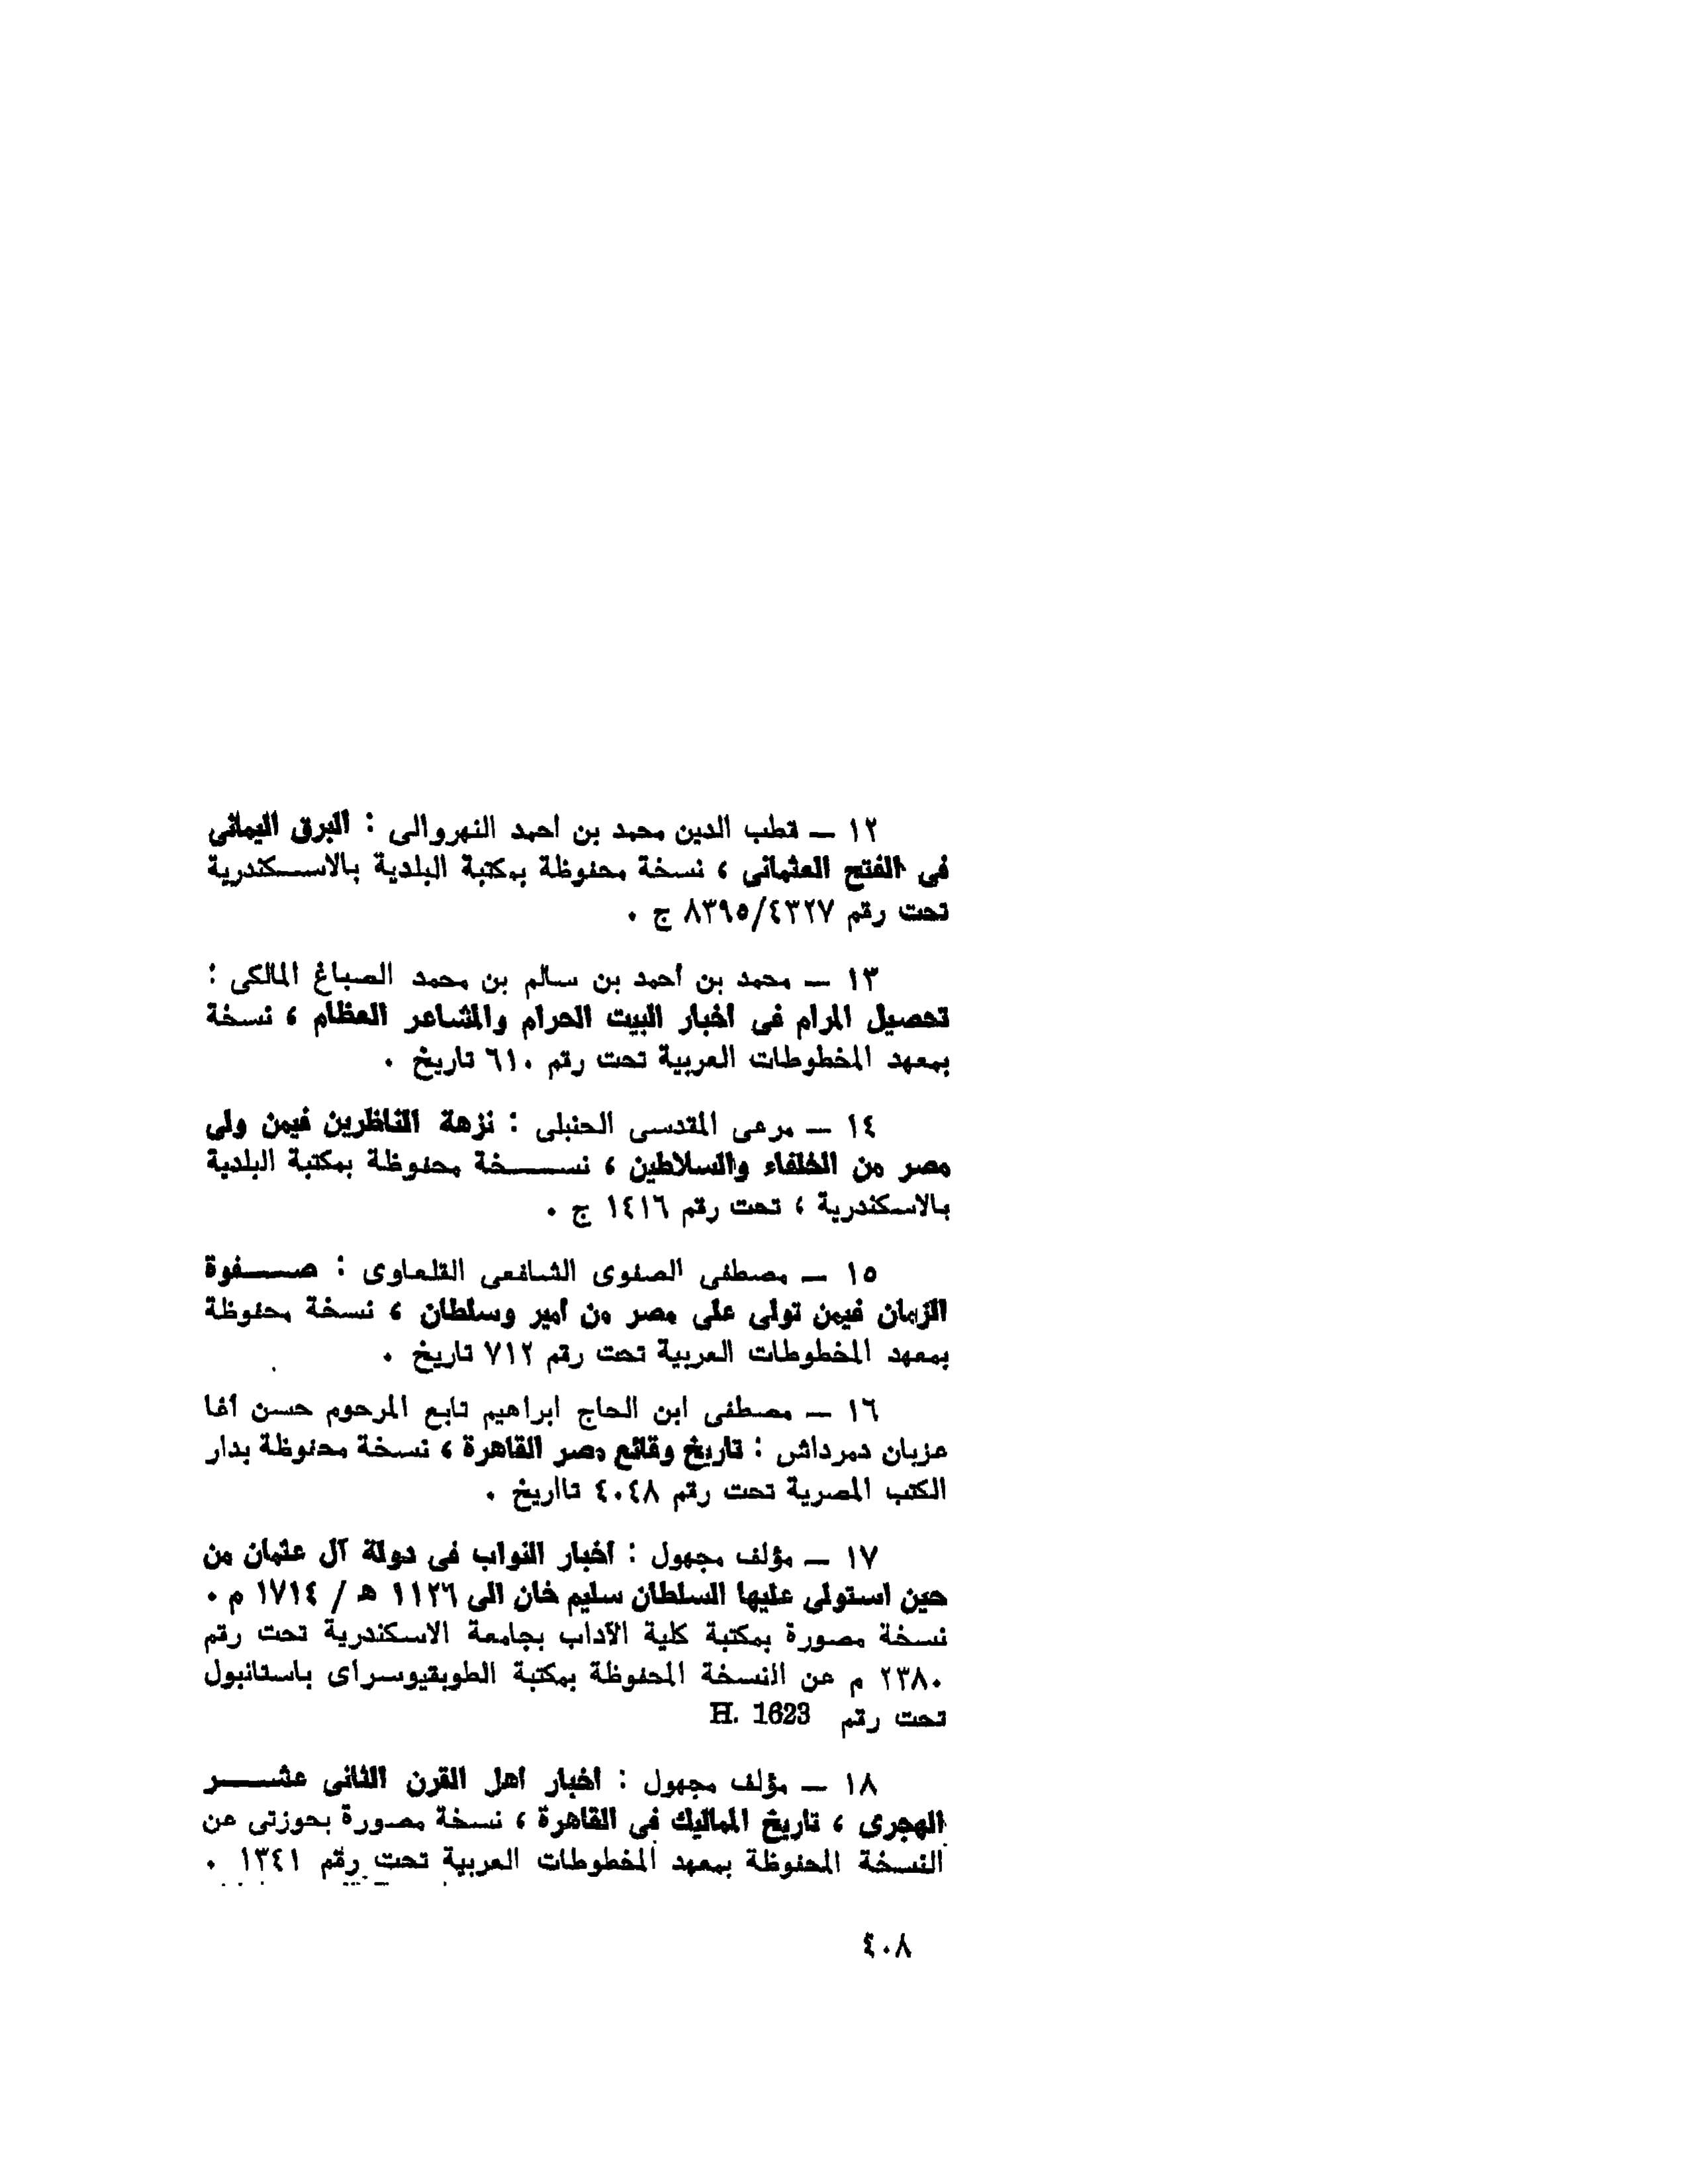 ١٢ — قطب الدين محمد بن احمد النهروالى : البرق اليمانى
فى الفتح العثمانى ، نسخة محفوظة بمكتبة البلدية بالاسكندرية
تحت رقم ٨٣٩٥/٤٣٢٧ ج .
١٣ — محمد بن أحمد بن سالم بن محمد الصباغ المالكى :
تحصيل المرام فى أخبار البيت الحرام والمشاعر العظام ، نسخة
بمعهد المخطوطات العربية تحت رقم ٦١٠ تاريخ .
١٤ — مرعى المقدسى الحنبلى : نزهة الناظرين فيمن ولى
مصر من الخلفاء والسلاطين ، نسخة محفوظة بمكتبة البلدية
بالاسكندرية ، تحت رقم ١٤١٦ ج .
١٥ — مصطفى الصفوى الشافعى القلعاوى : صفوة
الزمان فيمن تولى على مصر من أمير وسلطان ، نسخة محفوظة
بمعهد المخطوطات العربية تحت رقم ٧١٢ تاريخ .
١٦ — مصطفى ابن الحاج ابراهيم تابع المرحوم حسن أغا
عزبان دمرداش : تاريخ وقائع مصر القاهرة ، نسخة محفوظة بدار
الكتب المصرية تحت رقم ٤٠٤٨ تااريخ .
١٧ — مؤلف مجهول : أخبار النواب فى دولة آل عثمان من
حين استولى عليها السلطان سليم خان الى ١١٢٦ هـ / ١٧١٤ م .
نسخة مصورة بمكتبة كلية الآداب بجامعة الاسكندرية تحت رقم
٢٣٨٠ م عن النسخة المحفوظة بمكتبة الطوبقيوسراى باستانبول
تحت رقم H. 1623
١٨ — مؤلف مجهول : أخبار أهل القرن الثانى عشر
الهجرى ، تاريخ المماليك فى القاهرة ، نسخة مصورة بحوزتى عن
النسخة المحفوظة بمعهد المخطوطات العربية تحت رقم ١٣٤١ .
٤٠٨